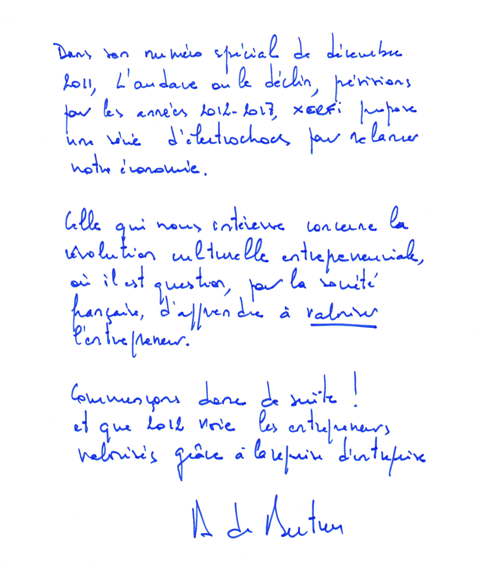 Dans son numéro spécial de décembre
2011, L'audace ou le déclin, prévisions
pour les années 2012-2017, XERFI propose
une série d'électrochocs pour relancer
notre économie.
Celle qui nous intéresse concerne la
révolution culturelle entrepreneuriale,
où il est question, pour la société
française, d'apprendre à valoriser
l'entrepreneur.
Commençons donc de suite !
et que 2012 voie les entrepreneurs
valorisés grâce à la reprise d'entreprise